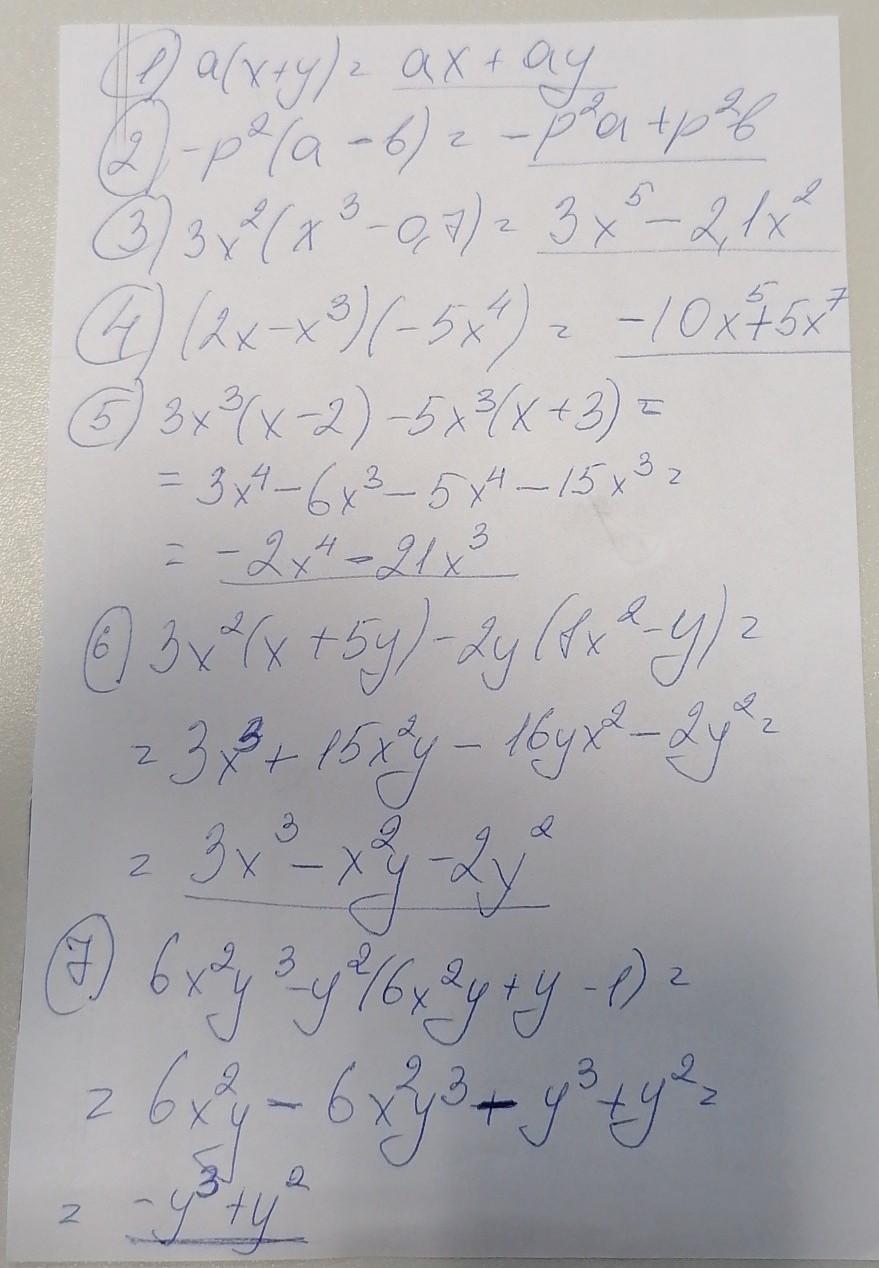 1) a(x+y) = ax + ay
2) -p²(a - b) = -p²a + p²b
3) 3x²(x³ - 0,7) = 3x⁵ - 2,1x²
4) (2x - x³)(-5x⁴) = -10x⁵ + 5x⁷
5) 3x³(x - 2) - 5x³(x + 3) =
= 3x⁴ - 6x³ - 5x⁴ - 15x³ =
= -2x⁴ - 21x³
6) 3x²(x + 5y) - 2y( x² - y) =
= 3x³ + 15x²y - 16yx² - 2y² =
= 3x³ - x²y - 2y²
7) 6x²y³ - y²(6x²y + y - 1) =
= 6x²y - 6x²y³ - y³ + y² =
= -y³ + y²